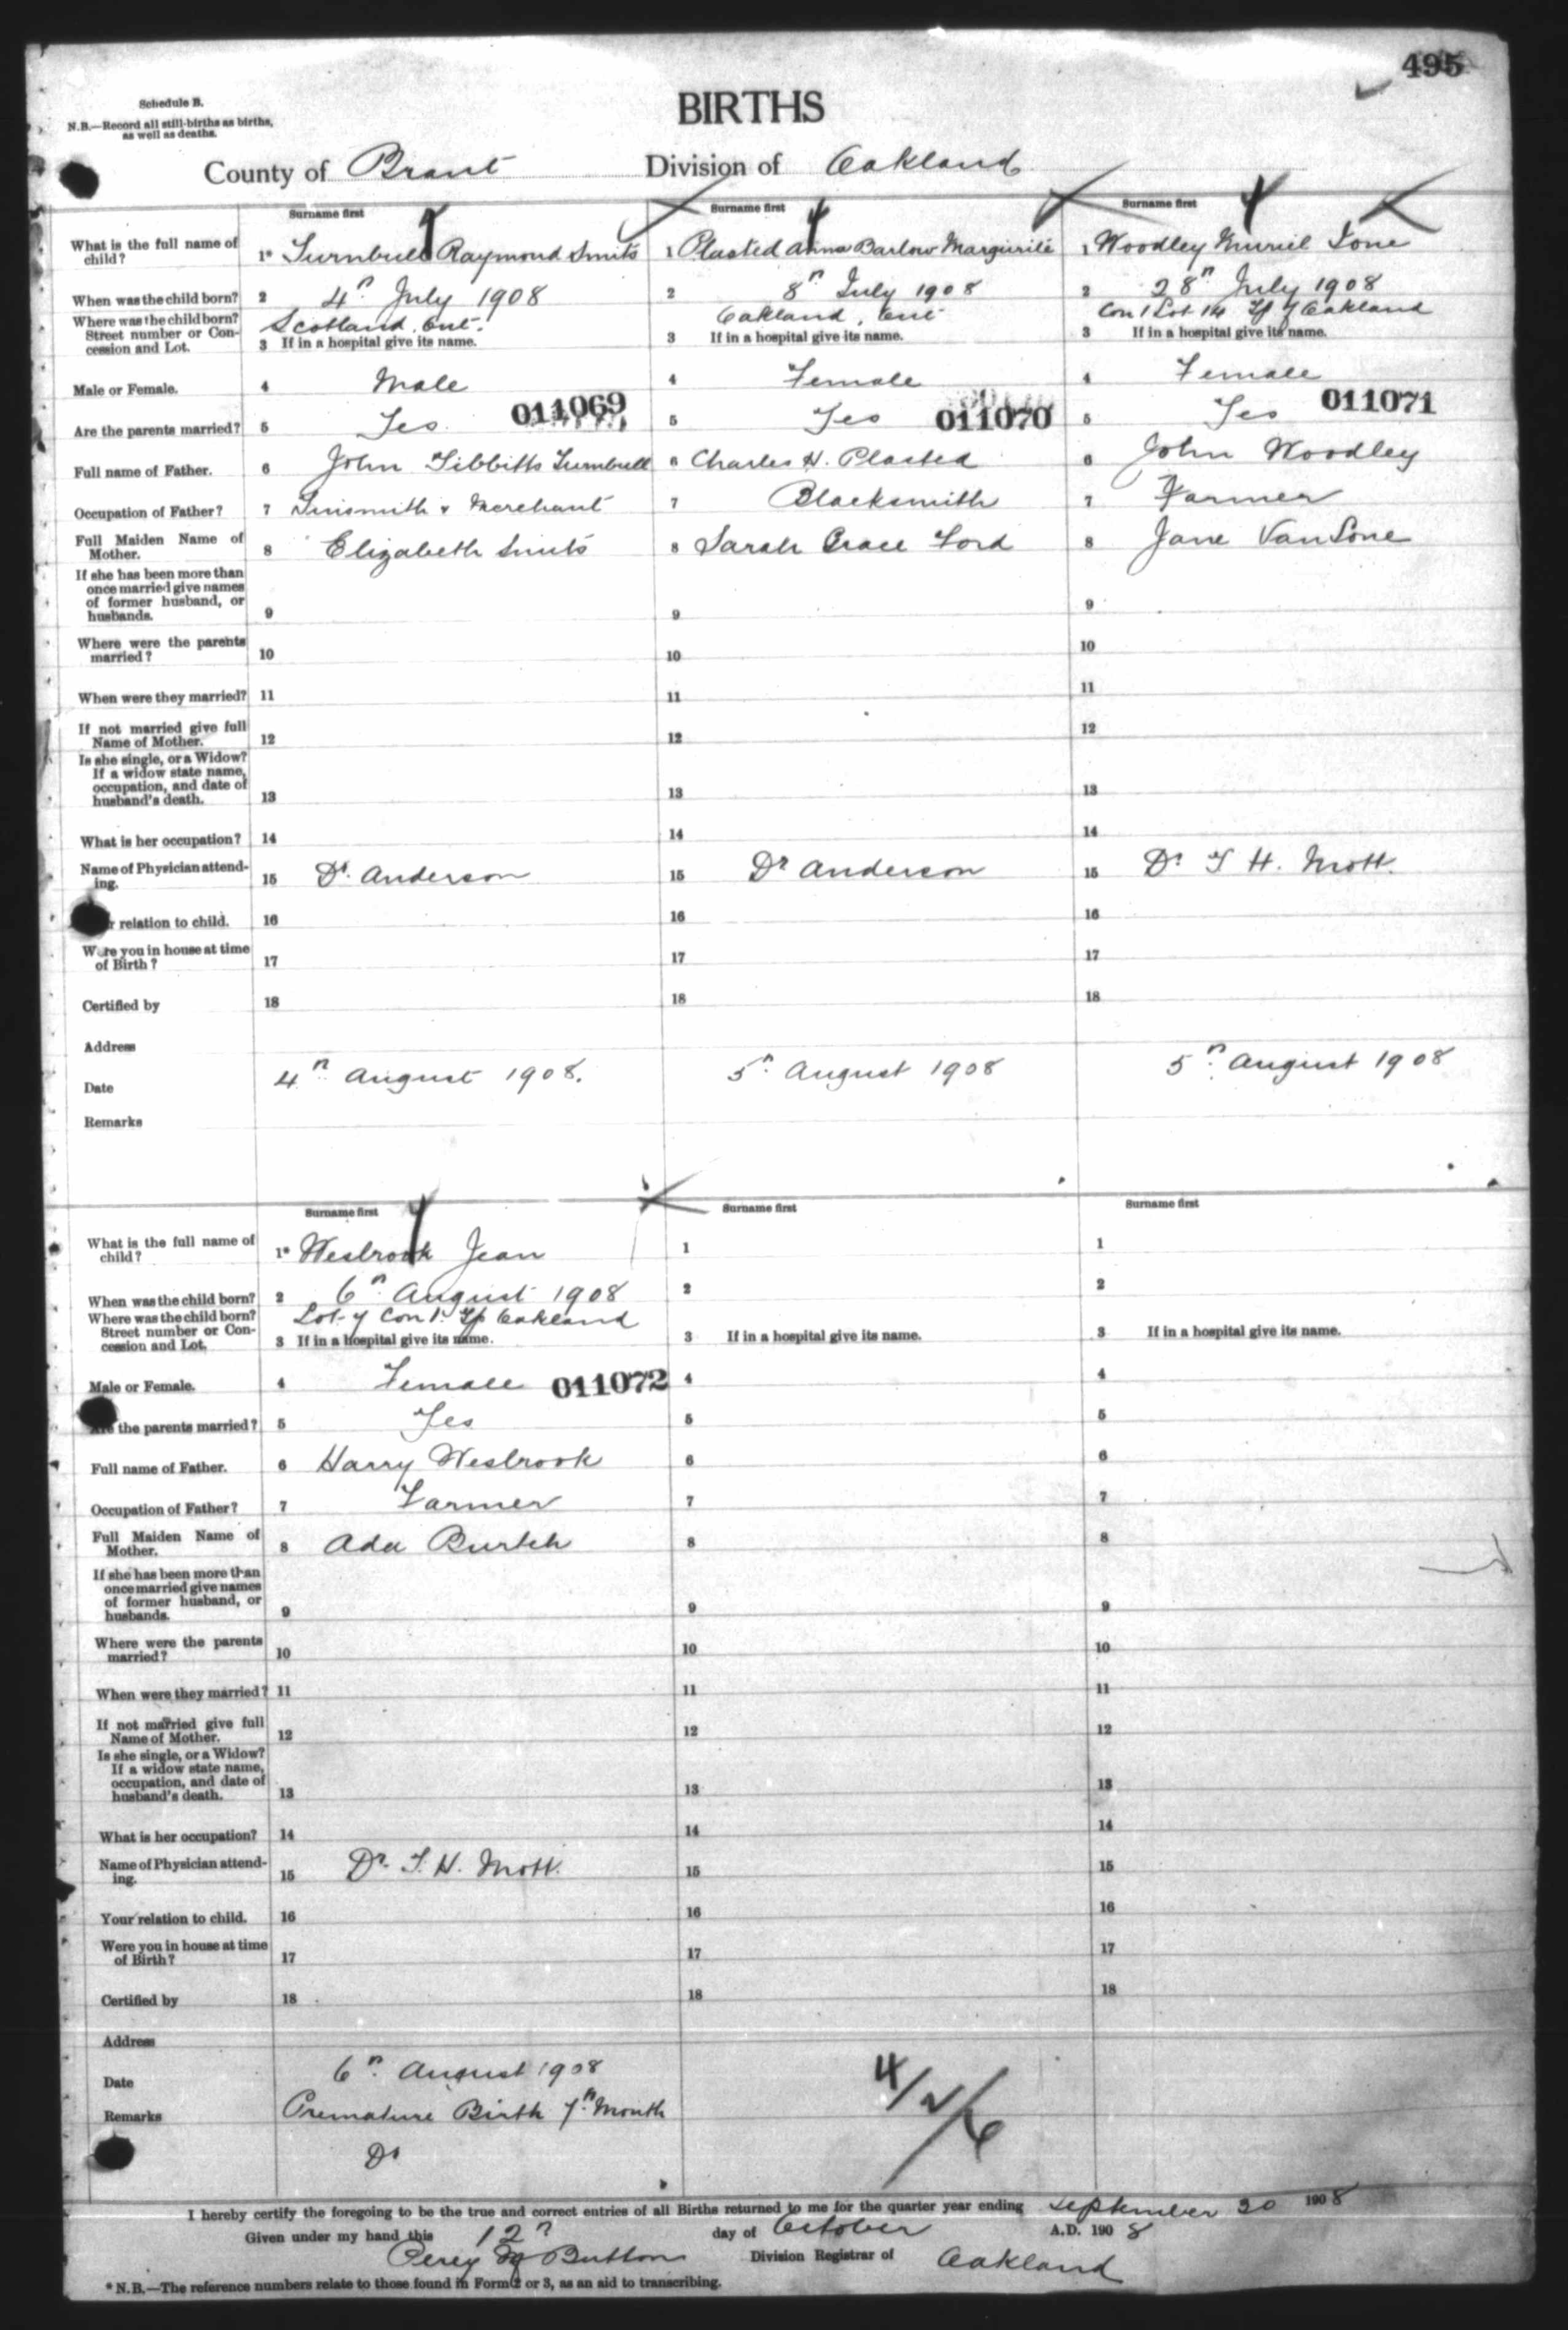 495
Schedule B.
N.B.—Record all still-births as births,
as well as deaths.
BIRTHS
County of Brant Division of Oakland
Surname first Surname first Surname first
What is the full name of child? 1* Turnbull Raymond Smits 1 Plasted Anna Barlow Margurite 1 Woodley Muriel Ione
When was the child born? 2 4th July 1908 2 8th July 1908 2 28th July 1908
Where was the child born? Street number or Concession and Lot. Scotland, Ont. Oakland, Ont Con 1 Lot 14 Tp of Oakland
3 If in a hospital give its name. 3 If in a hospital give its name. 3 If in a hospital give its name.
Male or Female. 4 Male 4 Female 4 Female
Are the parents married? 5 Yes 011069 5 Yes 011070 5 Yes 011071
Full name of Father. 6 John Tibbitts Turnbull 6 Charles H. Plasted 6 John Woodley
Occupation of Father? 7 Tinsmith & Merchant 7 Blacksmith 7 Farmer
Full Maiden Name of Mother. 8 Elizabeth Smits 8 Sarah Grace Ford 8 Jane VanLone
If she has been more than once married give names of former husband, or husbands. 9 9 9
Where were the parents married? 10 10 10
When were they married? 11 11 11
If not married give full Name of Mother. 12 12 12
Is she single, or a Widow? If a widow state name, occupation, and date of husband's death. 13 13 13
What is her occupation? 14 14 14
Name of Physician attending. 15 Dr. Anderson 15 Dr Anderson 15 Dr T H. Mott.
r relation to child. 16 16 16
Were you in house at time of Birth? 17 17 17
Certified by 18 18 18
Address
Date 4th August 1908. 5th August 1908 5th August 1908
Remarks
Surname first Surname first Surname first
What is the full name of child? 1* Wesbrook Jean 1 1
When was the child born? 2 6th August 1908 2 2
Where was the child born? Street number or Concession and Lot. Lot 7 Con 1. Tp Oakland
3 If in a hospital give its name. 3 If in a hospital give its name. 3 If in a hospital give its name.
Male or Female. 4 Female 011072 4 4
the parents married? 5 Yes 5 5
Full name of Father. 6 Harry Wesbrook 6 6
Occupation of Father? 7 Farmer 7 7
Full Maiden Name of Mother. 8 Ada Burtch 8 8
If she has been more than once married give names of former husband, or husbands. 9 9 9
Where were the parents married? 10 10 10
When were they married? 11 11 11
If not married give full Name of Mother. 12 12 12
Is she single, or a Widow? If a widow state name, occupation, and date of husband's death. 13 13 13
What is her occupation? 14 14 14
Name of Physician attending. 15 Dr. T. H. Mott. 15 15
Your relation to child. 16 16 16
Were you in house at time of Birth? 17 17 17
Certified by 18 18 18
Address
Date 6th August 1908
Remarks Premature Birth 7th Month
Dr
I hereby certify the foregoing to be the true and correct entries of all Births returned to me for the quarter year ending September 30 1908
Given under my hand this 12th day of October A.D. 1908
Percy Button Division Registrar of Oakland
* N.B.—The reference numbers relate to those found in Form 2 or 3, as an aid to transcribing.